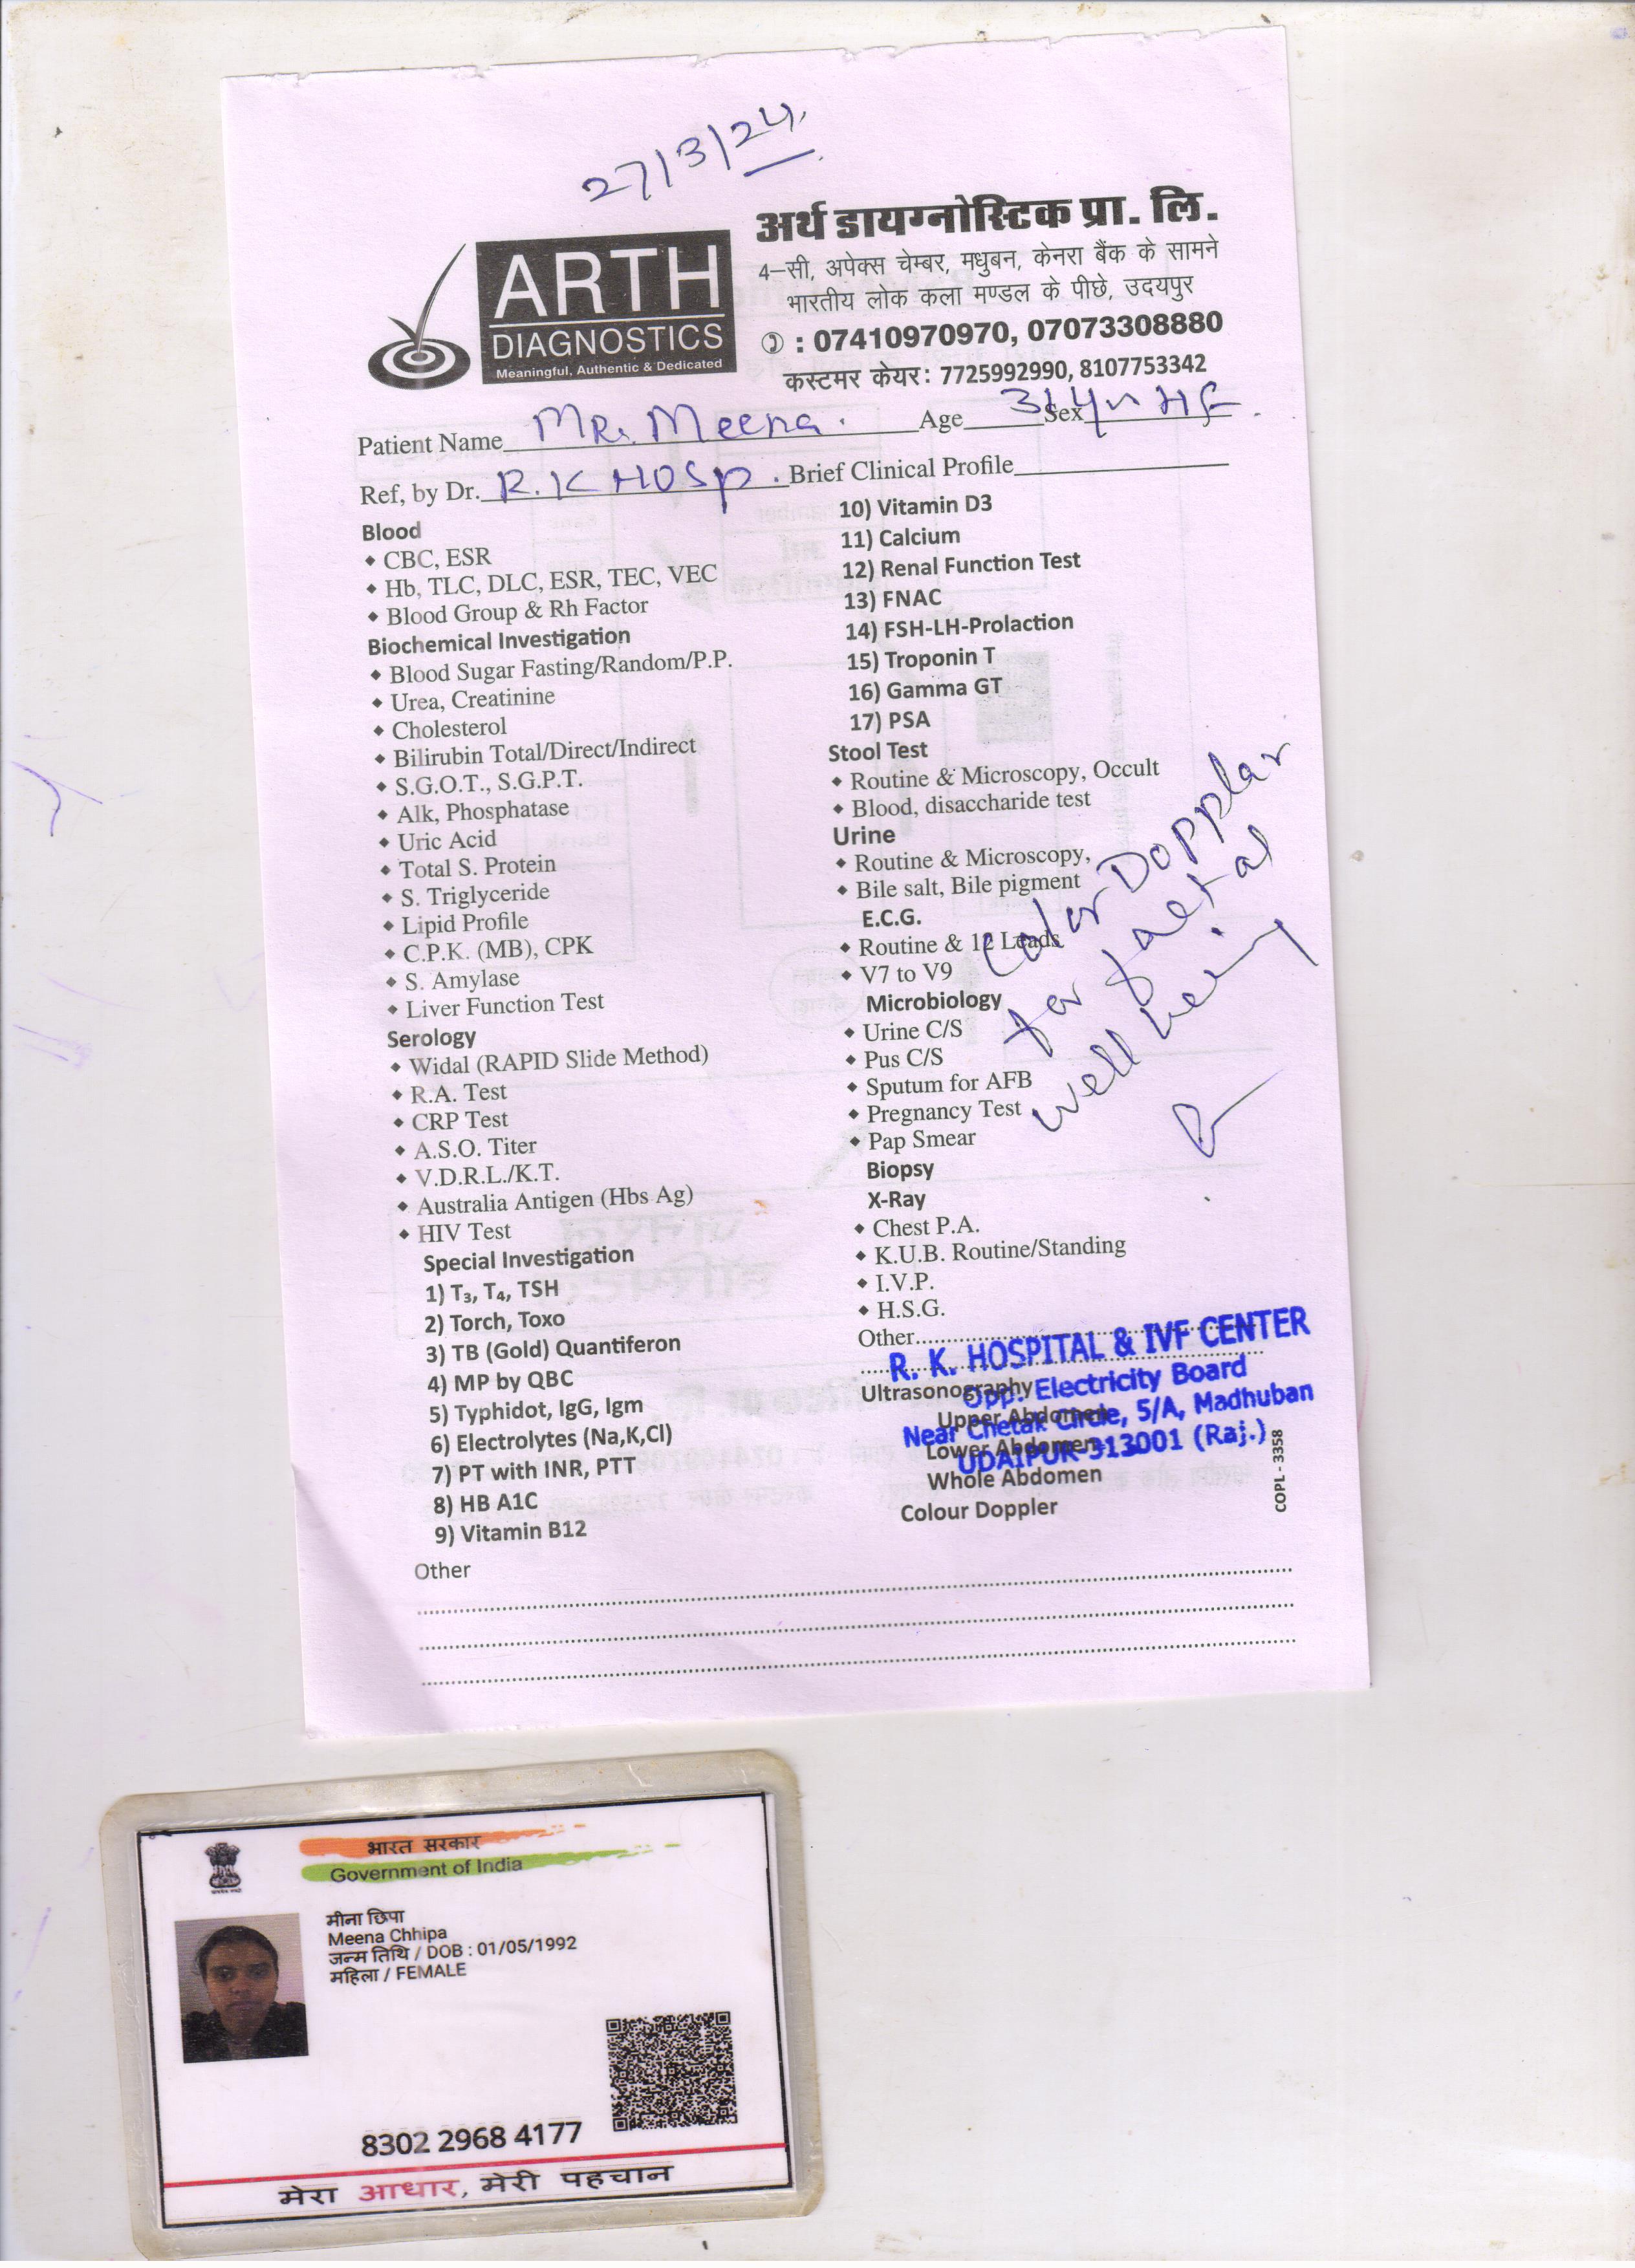 27/3/24
अर्थ डायग्नोस्टिक प्रा. लि.
4-सी, अपेक्स चेम्बर, मधुबन, केनरा बैंक के सामने
भारतीय लोक कला मण्डल के पीछे, उदयपुर
: 07410970970, 07073308880
कस्टमर केयर: 7725992990, 8107753342
ARTH
DIAGNOSTICS
Meaningful, Authentic & Dedicated
Patient Name MR. Meena. Age 31 Sex
Ref, by Dr. R.K HOSP. Brief Clinical Profile
Blood
CBC, ESR
Hb, TLC, DLC, ESR, TEC, VEC
Blood Group & Rh Factor
Biochemical Investigation
Blood Sugar Fasting/Random/P.P.
Urea, Creatinine
Cholesterol
Bilirubin Total/Direct/Indirect
S.G.O.T., S.G.P.T.
Alk, Phosphatase
Uric Acid
Total S. Protein
S. Triglyceride
Lipid Profile
C.P.K. (MB), CPK
S. Amylase
Liver Function Test
Serology
Widal (RAPID Slide Method)
R.A. Test
CRP Test
A.S.O. Titer
V.D.R.L./K.T.
Australia Antigen (Hbs Ag)
HIV Test
Special Investigation
1) T₃, T₄, TSH
2) Torch, Toxo
3) TB (Gold) Quantiferon
4) MP by QBC
5) Typhidot, IgG, Igm
6) Electrolytes (Na,K,Cl)
7) PT with INR, PTT
8) HB A1C
9) Vitamin B12
10) Vitamin D3
11) Calcium
12) Renal Function Test
13) FNAC
14) FSH-LH-Prolaction
15) Troponin T
16) Gamma GT
17) PSA
Stool Test
Routine & Microscopy, Occult
Blood, disaccharide test
Urine
Routine & Microscopy,
Bile salt, Bile pigment
E.C.G.
Routine & 12 Leads
V7 to V9
Microbiology
Urine C/S
Pus C/S
Sputum for AFB
Pregnancy Test
Pap Smear
Biopsy
X-Ray
Chest P.A.
K.U.B. Routine/Standing
I.V.P.
H.S.G.
Other
Ultrasonography
Upper Abdomen
Lower Abdomen
Whole Abdomen
Colour Doppler
Color Dopplar
for faetal
well being
R. K. HOSPITAL & IVF CENTER
Opp. Electricity Board
Near Chetak Circle, 5/A, Madhuban
UDAIPUR-313001 (Raj.)
COPL - 3358
Other
भारत सरकार
Government of India
मीना छिपा
Meena Chhipa
जन्म तिथि / DOB : 01/05/1992
महिला / FEMALE
8302 2968 4177
मेरा आधार, मेरी पहचान